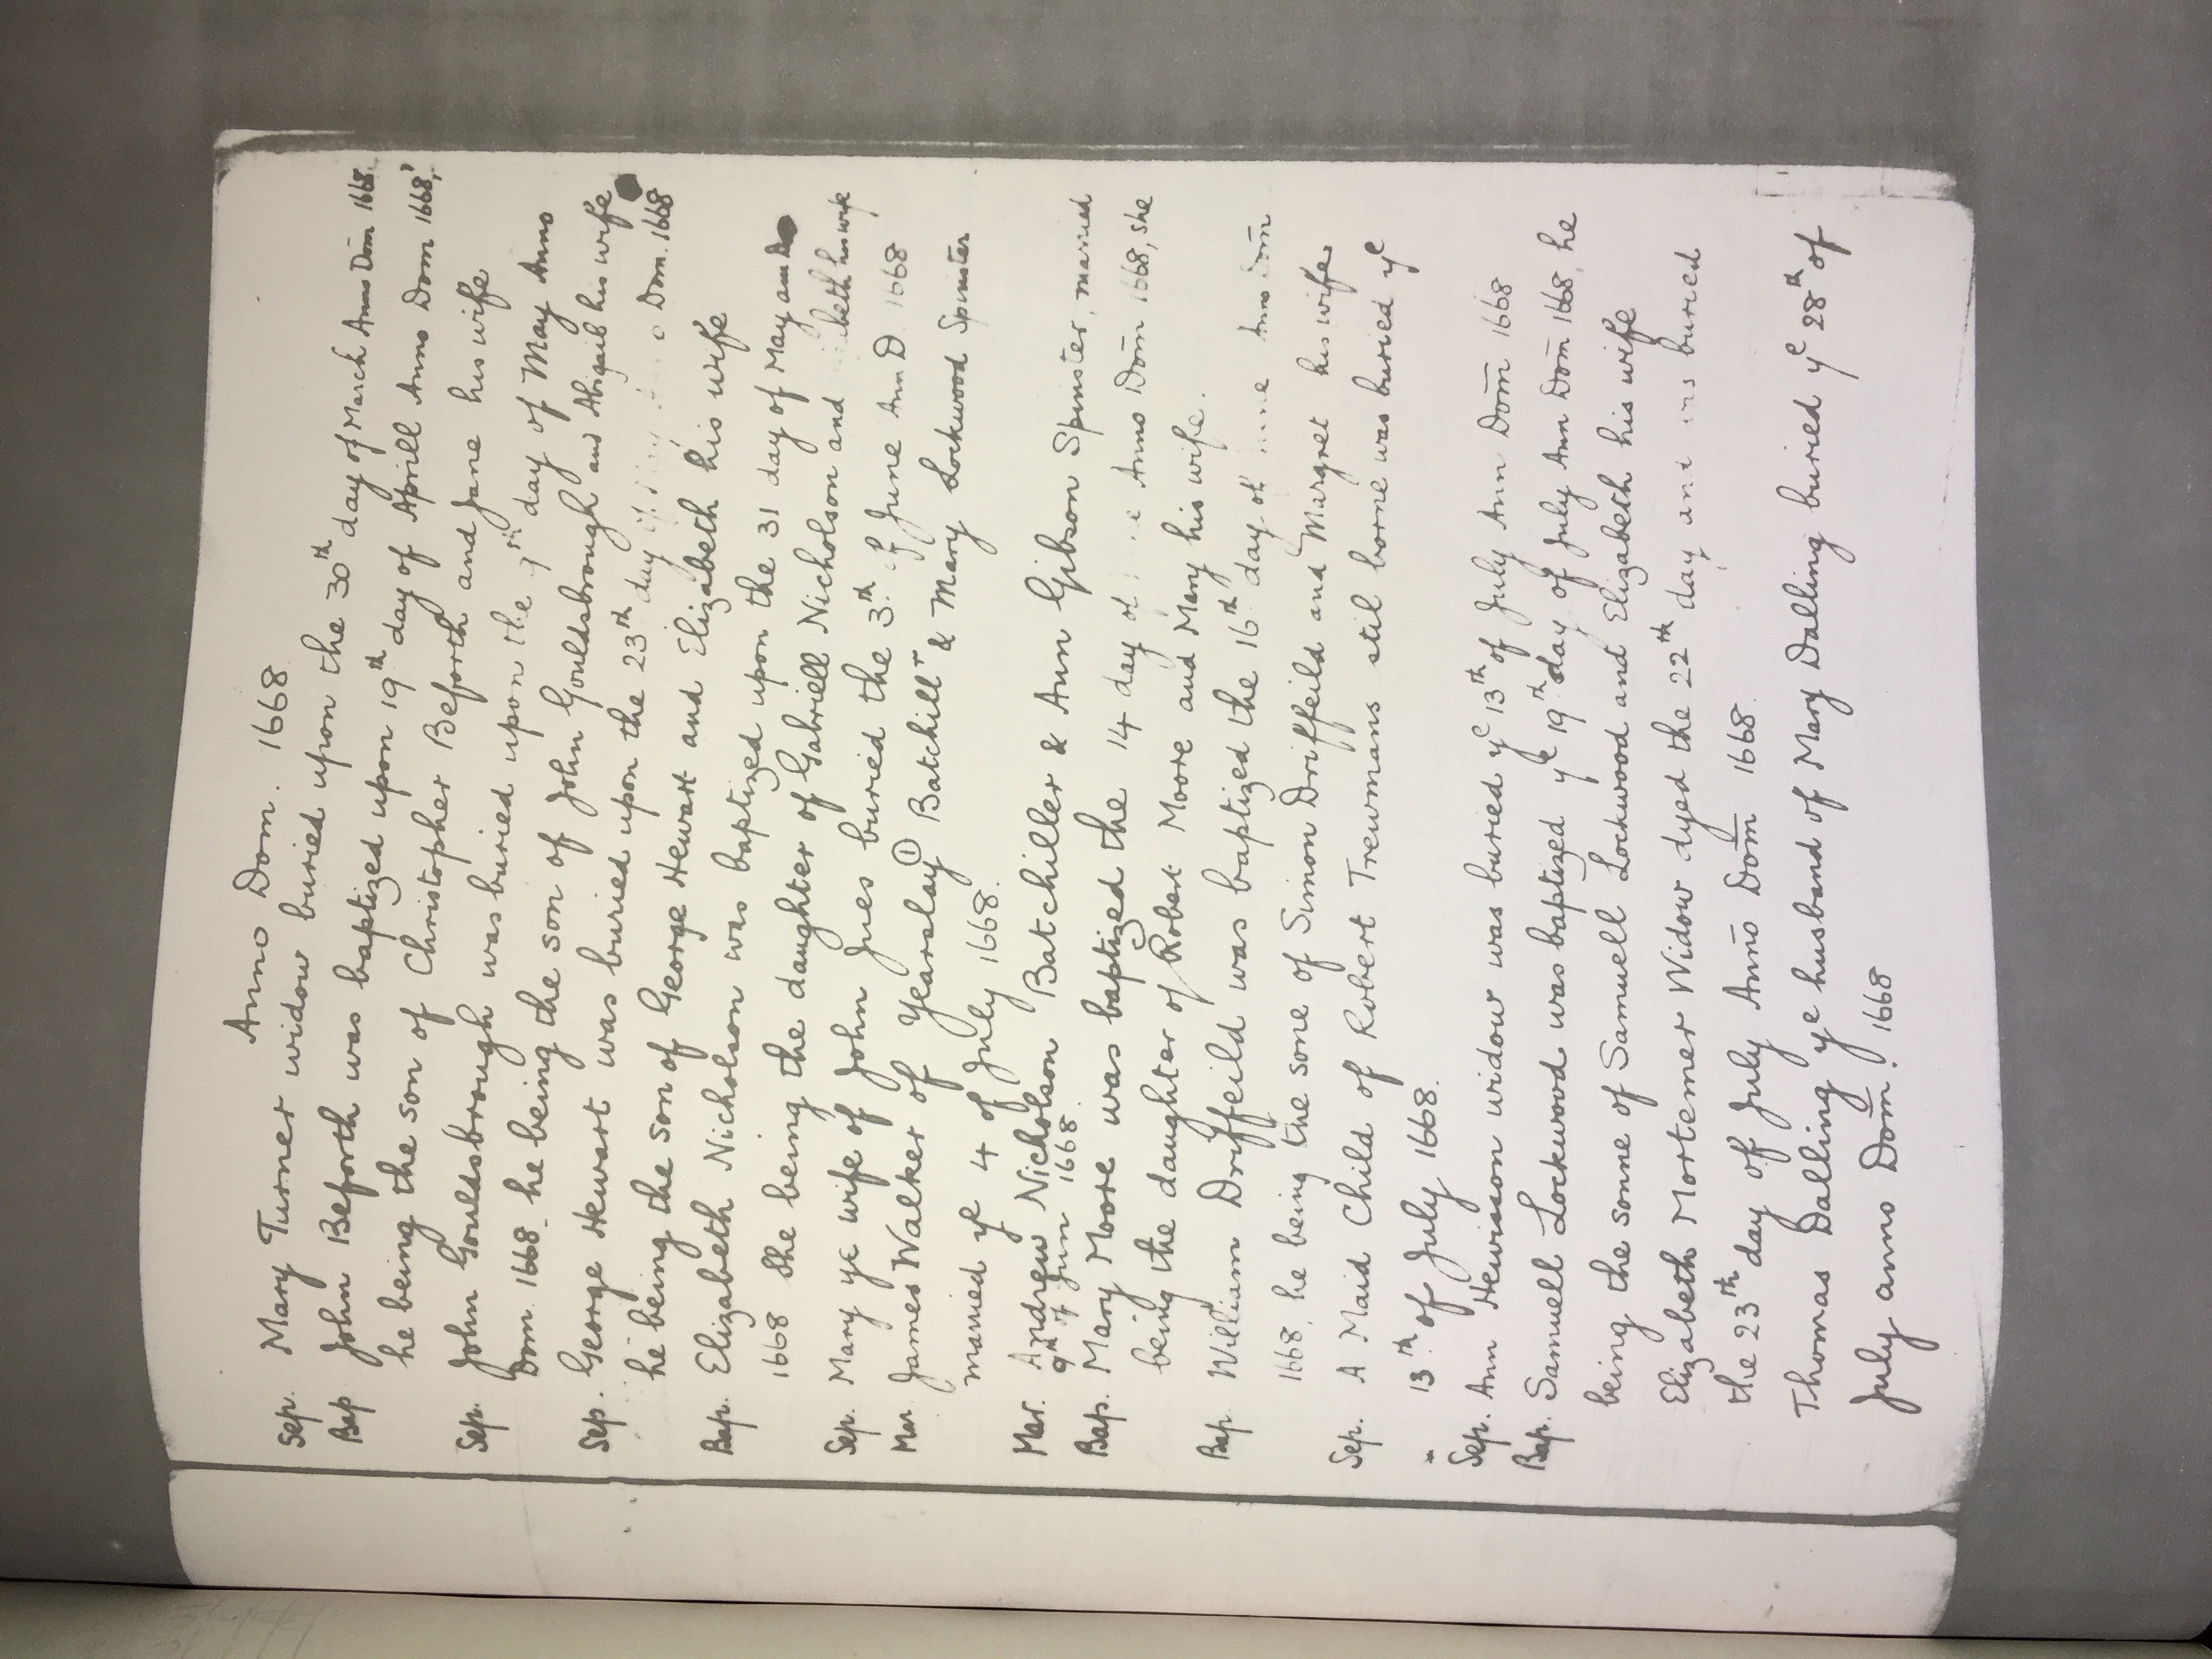 Anno Dom. 1668
Sep. Mary Turner widow buried upon the 30th day of March Anno Dom 1668.
Bap John Beforth was baptized upon 19th day of Aprill Anno Dom 1668,
he being the son of Christopher Beforth and Jane his wife
Sep. John Gouldsbrough was buried upon the 9th day of May Anno
Dom. 1668. he being the son of John Gouldsbrough and Abigail his wife
Sep. George Hewart was buried upon the 23th day Dom. 1668
he being the son of George Hewart and Elizabeth his wife
Bap. Elizabeth Nicholson was baptized upon the 31 day of May ann
1668 she being the daughter of Gabriell Nicholson and beth his wife
Sep. Mary ye wife of John Jues buried the 3th of June Ann D. 1668
Mar. James Walker of Yearslay ① Batchillr & Mary Lockwood Spinster
married ye 4 of July 1668.
Mar. Andrew Nicholson Batchiller & Ann Gibson Spinster, married
9th of Jun 1668.
Bap. Mary Moore was baptized the 14 day of Anno Dom̄ 1668, she
being the daughter of Robert Moore and Mary his wife.
Bap. William Driffeild was baptized the 16th day of Anno Dom̄
1668, he being the sone of Simon Driffeild and Margret his wife
Sep. A Maid Child of Robert Trewmans stil borne was buried ye
13th of July 1668.
Sep. Ann Hewisson widow was buried ye 13th of July Ann Dom̄ 1668
Bap. Samuell Lockwood was baptized ye 19th day of July Ann Dom̄ 1668, he
being the sonne of Samuell Lockwood and Elizabeth his wife
Elizabeth Mortemer Widow dyed the 22th day and was buried
the 23th day of July Anno Dom̄ 1668.
Thomas Dalling ye husband of Mary Dalling buried ye 28th of
July anno Dom̄. 1668